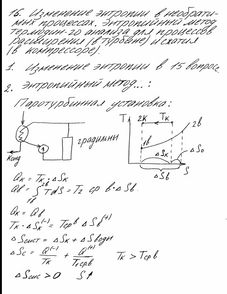 16. Изменение энтропии в необрати-
мых процессах. Энтропийный метод
термодин-го анализа для процессов
расширения (в турбине) и сжатия
(в компрессоре).
1. Изменение энтропии в 15 вопросе
2. Энтропийный метод...:
Паротурбинная установка:
T
2к
Tк
2в
1в
ΔSк
ΔSв
S
градирни
Qк = Tк · ΔSк
Qв = ∫ TdS = Tв ср в · ΔSв
Qк = Qв
Tк · ΔSк⁽⁻⁾ = Tсрв ΔSв⁽⁺⁾
ΔSсист = ΔSк + ΔSводы
ΔSс = Q⁽⁻⁾/Tк + Q⁽⁺⁾/Tсрв   Tк > Tсрв
ΔSсис > 0   S↑